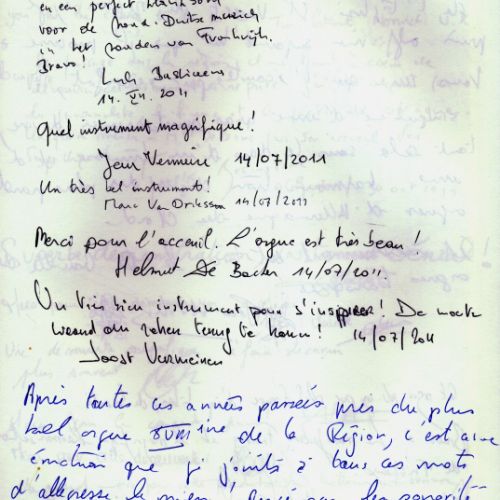 en een perfect klankbord
voor de Noord-Duitse muziek
in het zuiden van Frankrijk.
Bravo!
Luk Bastiaens
14.VII.2011
Quel instrument magnifique!
Jean Vermeire 14/07/2011
Un très bel instrument!
Marc Van Driessen 14/07/2011
Merci pour l'acceuil. L'orgue est très beau!
Helmut De Backer 14/07/2011.
Un très bien instrument pour s'inspirer! De moeite
waard om zeker terug te komen! 14/07/2011
Joost Vermeiren
Après toutes ces années passées près du plus
bel orgue XVIIIine de la Région, c'est avec
émotion que je joints à tous ces mots
d'allégresse le mien